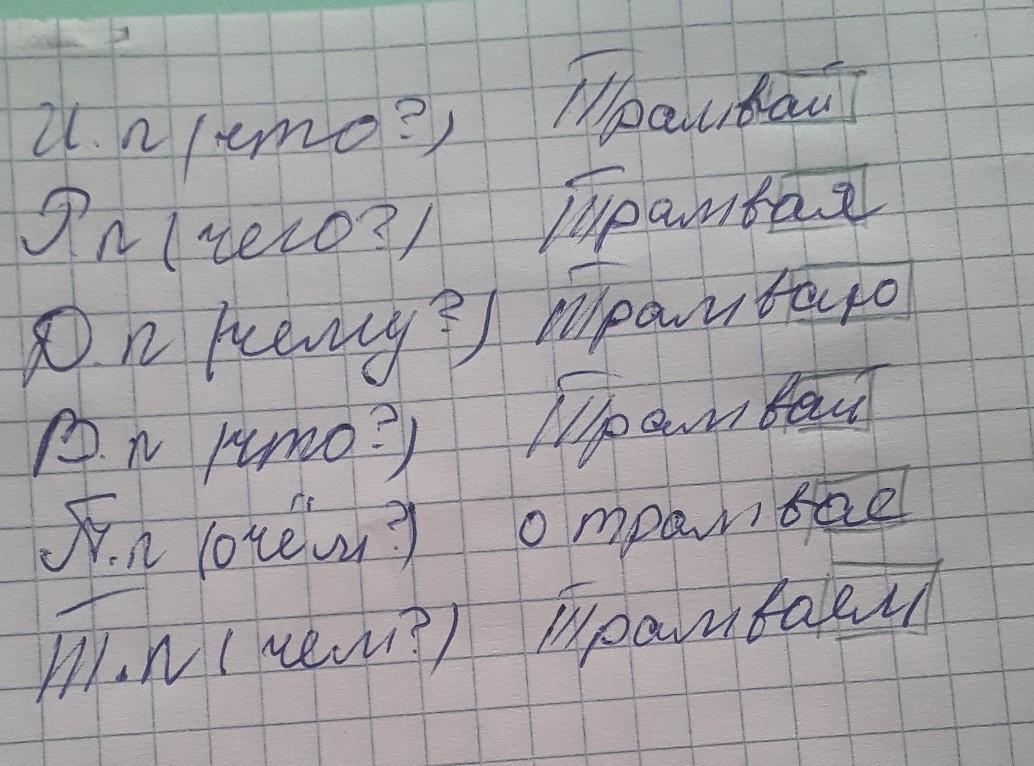 И.п (что?) Трамвай
Р.п (чего?) Трамвая
Д.п (чему?) Трамваю
В.п (что?) Трамвай
П.п (очём?) о трамвае
Т.п (чем?) Трамваем